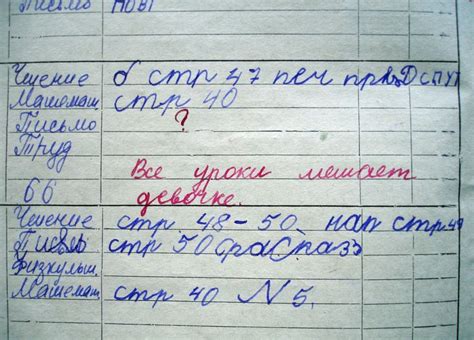 Письмо нові
Чтение б стр 47 печ
Математ стр 40
Письмо ?
Труд
Все уроки мешает
66 девочке.
Чтение стр. 48-50. нап стр. 49
стр 50
Физкульт.
Математ стр 40 N 5.